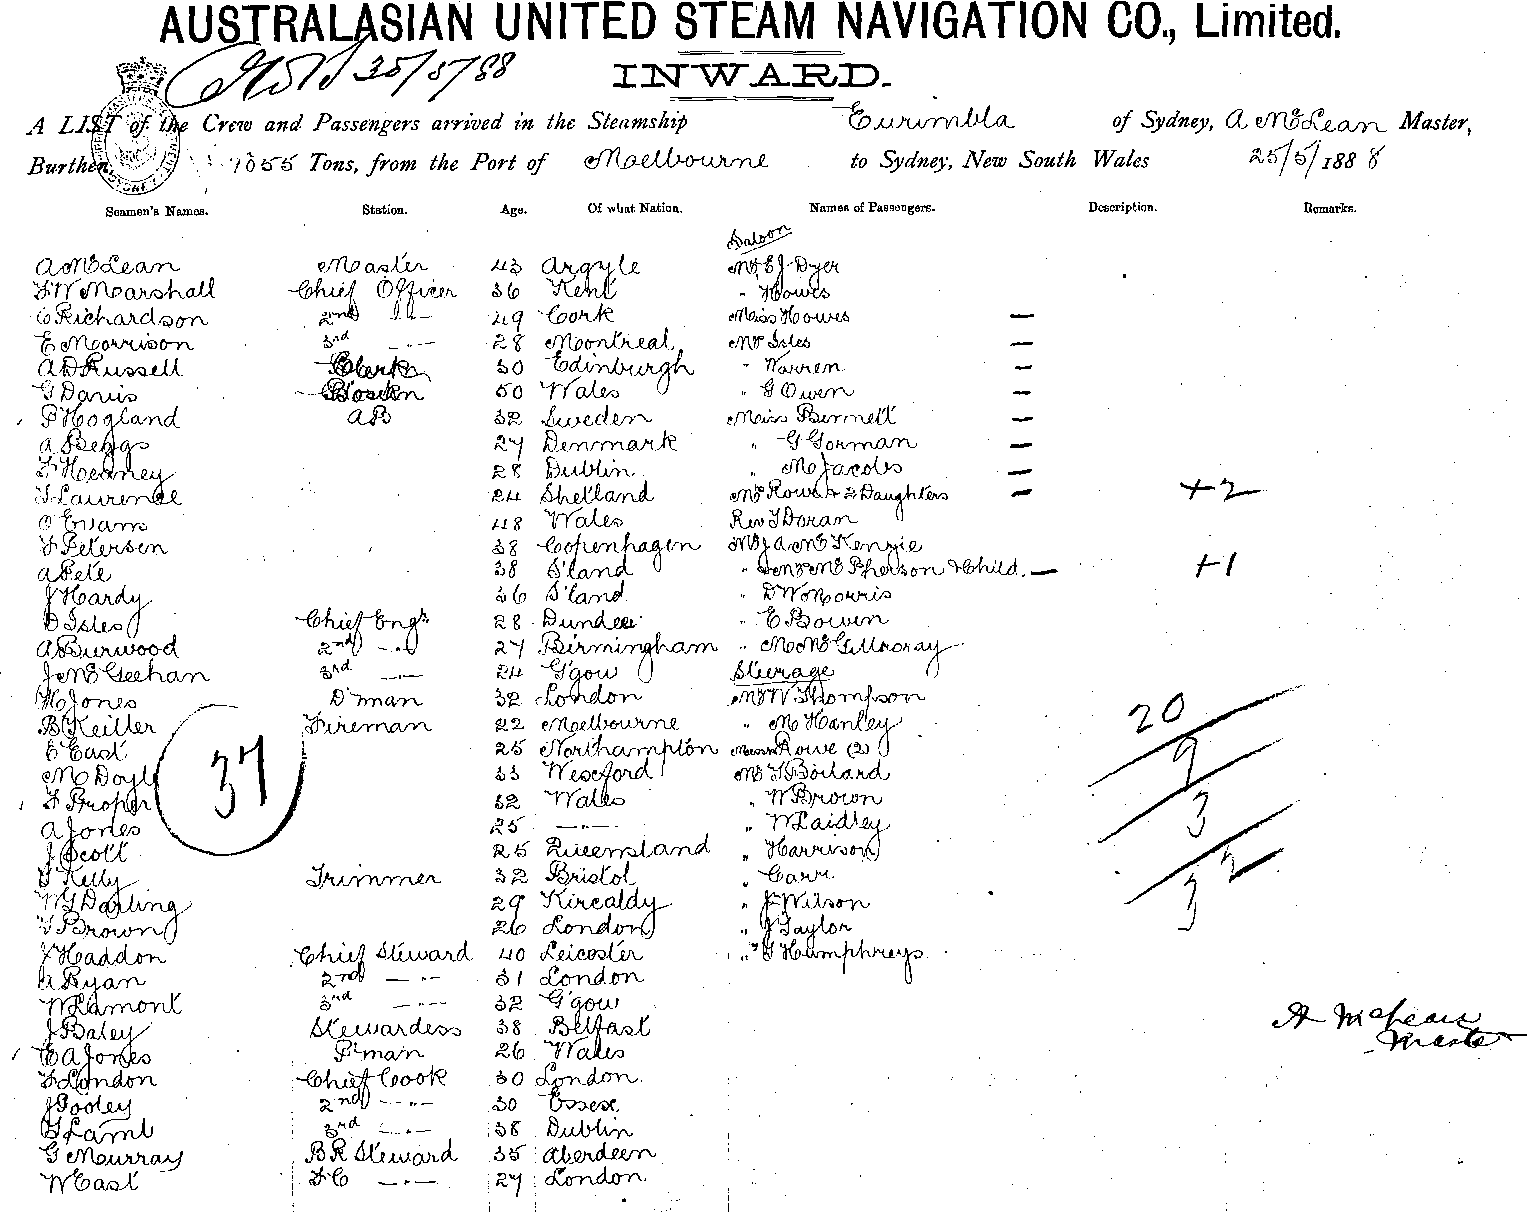 AUSTRALASIAN UNITED STEAM NAVIGATION CO., Limited.
25/5/88
INWARD.
A LIST of the Crew and Passengers arrived in the Steamship Eurimbla of Sydney, A McLean Master,
Burthen 1055 Tons, from the Port of Melbourne to Sydney, New South Wales 25/5/1888
Seamen's Names. Station. Age. Of what Nation. Names of Passengers. Description. Remarks.
Saloon
A McLean Master 43 Argyle Mr E J Dyer
F W Marshall Chief Officer 36 Kent " Howes
C Richardson 2nd -"- 49 Cork Miss Howes —
E Morrison 3rd -"- 28 Montreal Mr Isles —
A D Russell Clerk 30 Edinburgh " Warren —
G Davis Bos'n 50 Wales " G Owen —
P Hogland AB 32 Sweden Miss Bennett —
A Beggs 27 Denmark " G Gorman —
F Heaney 28 Dublin " M Jacobs —
T Laurence 24 Shetland Mr Rowe & 2 Daughters — +2
O Evans 48 Wales Rev T Doran
F Petersen 38 Copenhagen Mr J A McKenzie
A Pete 38 S'land " McPherson & Child. — +1
J Hardy 36 S'land " D W Morris
D Isles Chief Engr 28 Dundee " E Bowen
A Burwood 2nd -"- 27 Birmingham " M McGillvray
J McGeehan 3rd -"- 24 G'gow Steerage
H Jones D'man 32 London Mr W Thompson
B Keiller Fireman 22 Melbourne " M Hanley 20
E East 25 Northampton Rowe (2) 9
M Doyle 33 Wexford Mr T Boiland
F Proper 37 32 Wales " W Brown 3
A Jones 25 -"- " W Laidley
J Scott 25 Queensland " Harrison 2
T Kelly Trimmer 32 Bristol " Carr 3
W G Darling 29 Kircaldy " J Wilson
T Brown 26 London " J Taylor
J Haddon Chief Steward 40 Leicester " G Humphreys
A Ryan 2nd -"- 31 London
W Lamont 3rd -"- 32 G'gow
J Baley Stewardess 38 Belfast
E A Jones P'man 26 Wales
F London Chief Cook 30 London
J Pooley 2nd -"- 30 Essex
G Lamb 3rd -"- 38 Dublin
G Murray B R Steward 35 Aberdeen
W East F C -"- 27 London
A McLean
Master